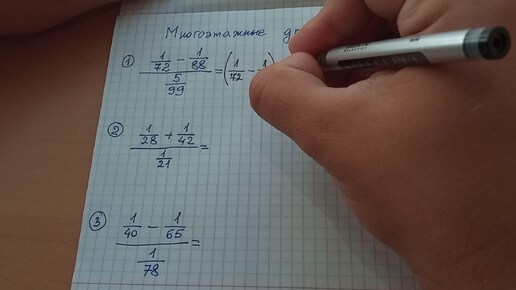 Многоэтажные
① (1/72 - 1/88) / (5/99) = (1/72 - 1
② (1/28 + 1/42) / (1/21) =
③ (1/40 - 1/65) / (1/78) =